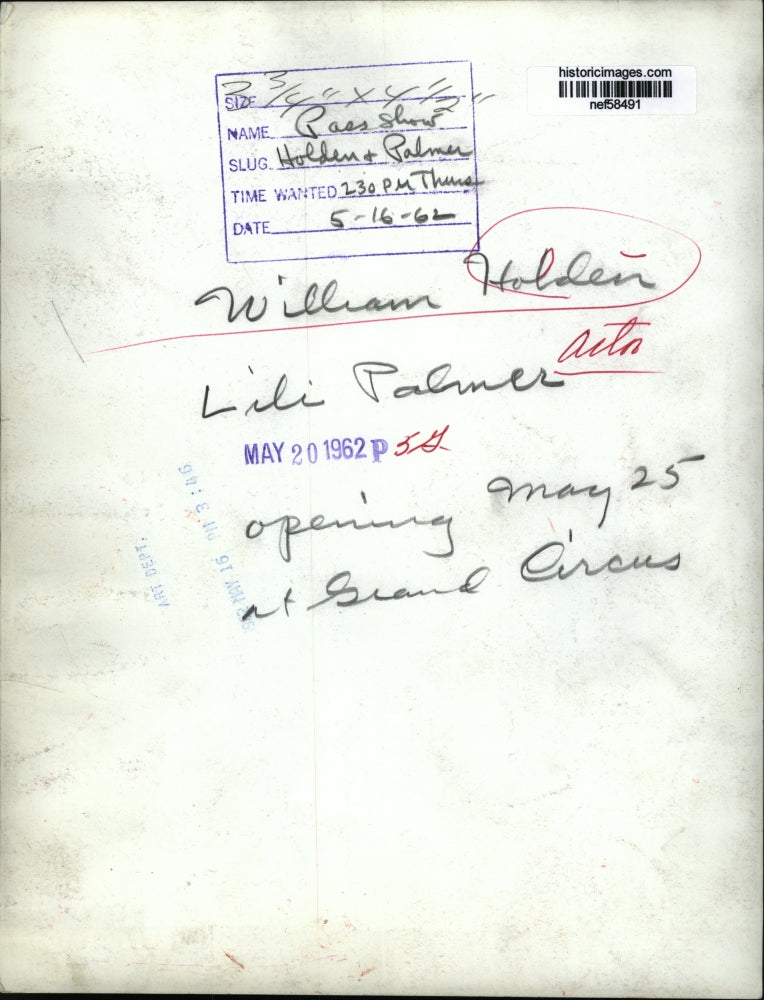 historicimages.com
nef58491
SIZE 2 3/4" X 4 1/2"
NAME Pass Show
SLUG Holden + Palmer
TIME WANTED 230 PM Thurs
DATE 5-16-62
William Holden
actor
Lili Palmer
MAY 20 1962 P 5G
opening May 25
at Grand Circus
ART DEPT.
MAY 16 PM 3:46